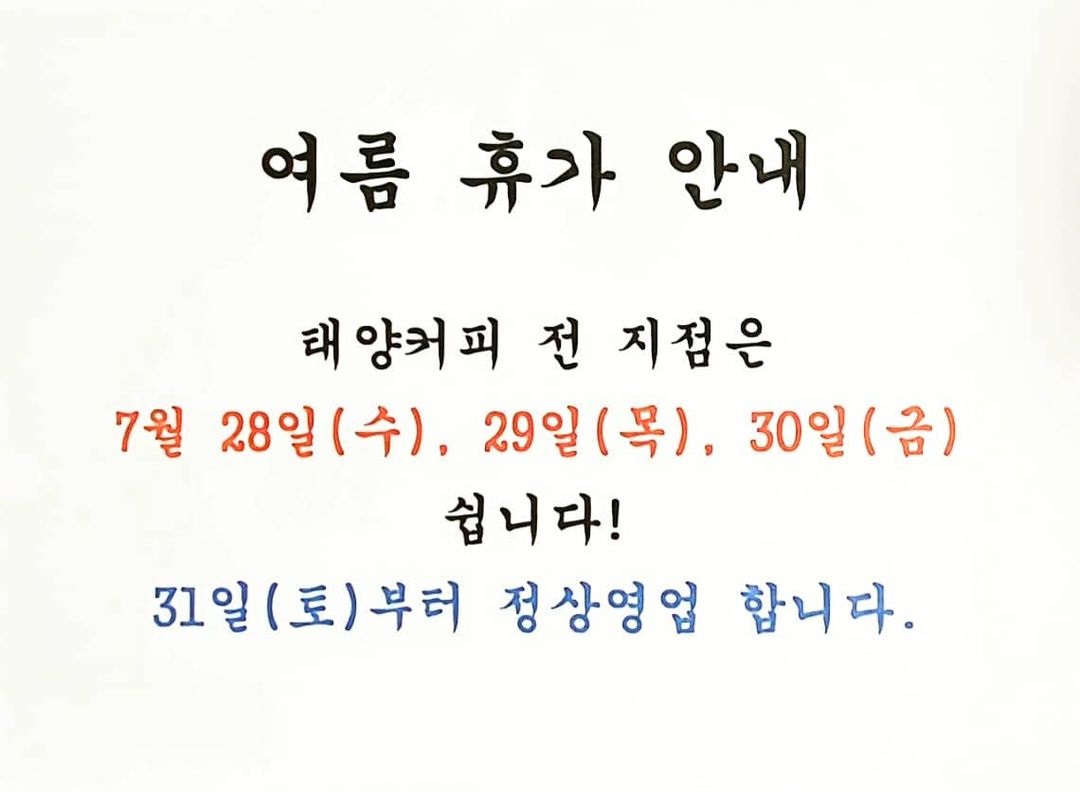 여름 휴가 안내
태양커피 전 지점은
7월 28일(수), 29일(목), 30일(금)
쉽니다!
31일(토)부터 정상영업 합니다.